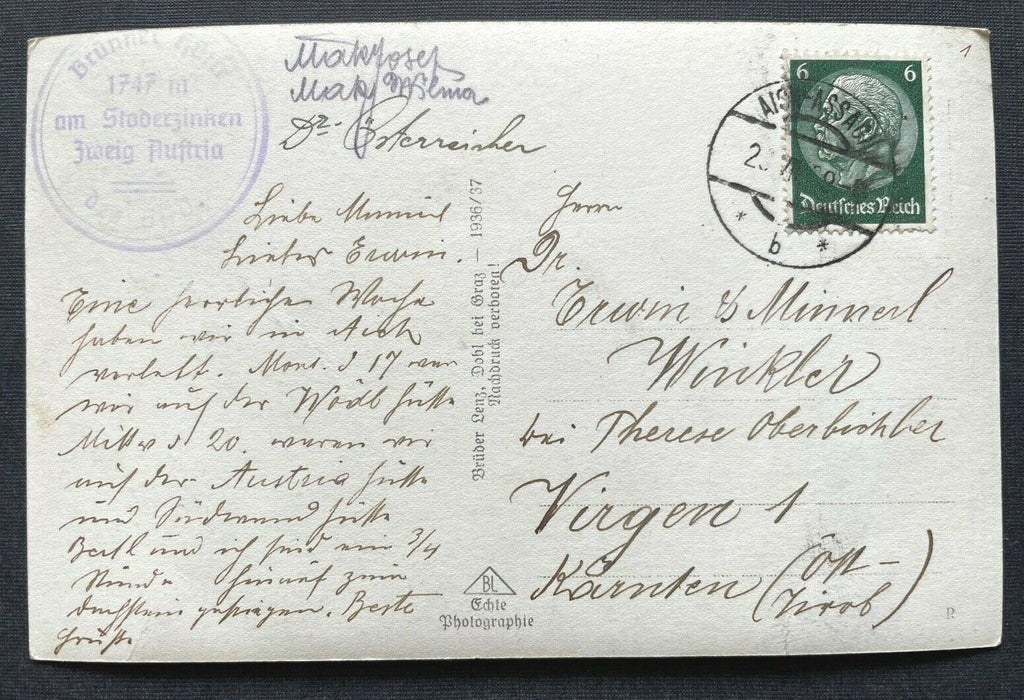 Brünner Hütte
1747 m
am Stoderzinken
Zweig Austria
Mak Josef
Mak Wilma
Dr. Österreicher
Liebe Minnerl
Lieber Erwin.
Eine herrliche Woche
haben wir in Aich
verlebt. Mont. d 17 war
wir auf der Wödl Hütte
Mittw d 20. waren wir
auf der Austria Hütte
und Südwand Hütte
Bertl und ich sind ein 3/4
Stunde hinauf zum
Dachstein gestiegen. Beste
Grüße
Brüder Lenz, Dobl bei Graz — 1936/37
Nachdruck verboten!
BL
Echte
Photographie
6 6
Deutsches Reich
AICH-ASSACH
b
Herrn
Dr.
Erwin & Minnerl
Winkler
bei Therese Oberbichler
Virgen 1
Kärnten (Ost-
Tirol)
R
1